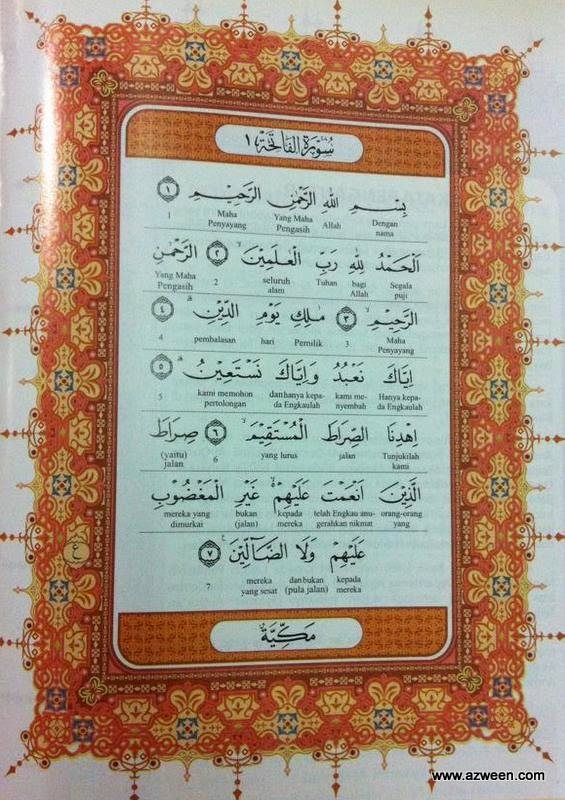 سُوْرَةُ الْفَاتِحَةِ ١
بِسْمِ اللّٰهِ الرَّحْمٰنِ الرَّحِيْمِ ١
Dengan nama Allah Yang Maha Pengasih Maha Penyayang 1
اَلْحَمْدُ لِلّٰهِ رَبِّ الْعٰلَمِيْنَۙ ٢ الرَّحْمٰنِ
Segala puji bagi Allah Tuhan seluruh alam 2 Yang Maha Pengasih
الرَّحِيْمِۙ ٣ مٰلِكِ يَوْمِ الدِّيْنِۗ ٤
Maha Penyayang 3 Pemilik hari pembalasan 4
اِيَّاكَ نَعْبُدُ وَاِيَّاكَ نَسْتَعِيْنُۗ ٥
Hanya kepada Engkaulah kami menyembah dan hanya kepada Engkaulah kami memohon pertolongan 5
اِهْدِنَا الصِّرَاطَ الْمُسْتَقِيْمَۙ ٦ صِرَاطَ
Tunjukilah kami jalan yang lurus 6 (yaitu) jalan
الَّذِيْنَ اَنْعَمْتَ عَلَيْهِمْ ەۙ غَيْرِ الْمَغْضُوْبِ
orang-orang yang telah Engkau anugerahkan nikmat kepada mereka bukan (jalan) mereka yang dimurkai
عَلَيْهِمْ وَلَا الضَّاۤلِّيْنَ ٧
kepada mereka dan bukan (pula jalan) mereka yang sesat 7
ع
مَكِّيَّة
www.azween.com